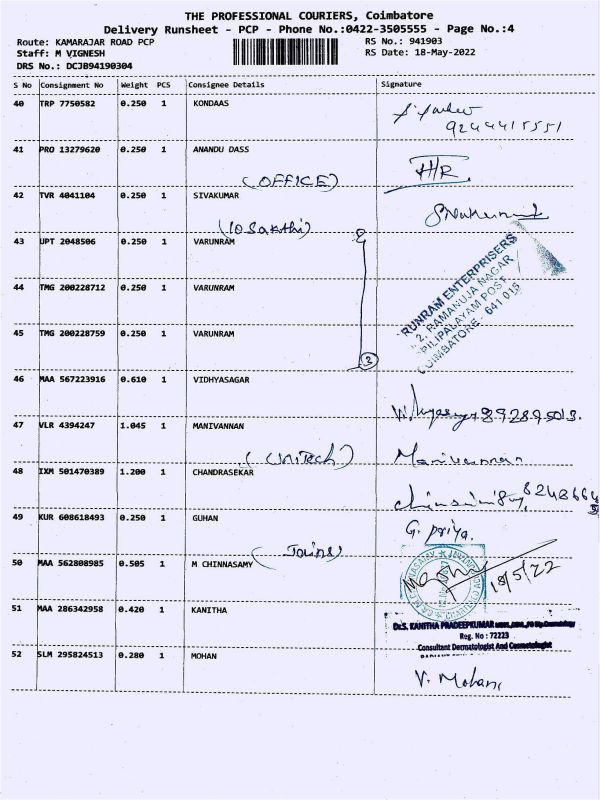 THE PROFESSIONAL COURIERS, Coimbatore
Delivery Runsheet - PCP - Phone No.:0422-3505555 - Page No.:4
Route: KAMARAJAR ROAD PCP RS No.: 941903
Staff: M VIGNESH RS Date: 18-May-2022
DRS No.: DCJB94190304
S No Consignment No Weight PCS Consignee Details Signature
40 TRP 7750582 0.250 1 KONDAAS
9244415551
41 PRO 13279620 0.250 1 ANANDU DASS
(OFFICE)
42 TVR 4041104 0.250 1 SIVAKUMAR
43 UPT 2048506 0.250 1 VARUNRAM
44 TMG 200228712 0.250 1 VARUNRAM
RUNRAM ENTERPRISERS
2, RAMANUJA NAGAR
PILIPALAYAM POST
OIMBATORE - 641 015
45 TMG 200228759 0.250 1 VARUNRAM
46 MAA 567223916 0.610 1 VIDHYASAGAR
47 VLR 4394247 1.045 1 MANIVANNAN
(UNITech) Manivannan
48 IXM 501470389 1.200 1 CHANDRASEKAR
49 KUR 608618493 0.250 1 GUHAN
G. priya.
50 MAA 562808985 0.505 1 M CHINNASAMY
18/5/22
51 MAA 286342958 0.420 1 KANITHA
Dr.S. KANITHA PRADEEPKUMAR
Reg. No : 72223
Consultant Dermatologist And Cosmetologist
52 SLM 295824513 0.280 1 MOHAN
V. Mohan